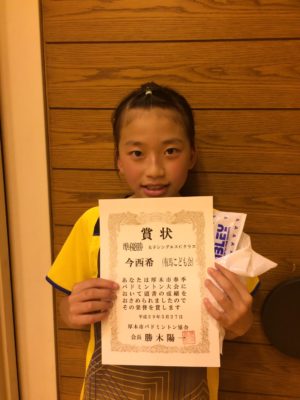 賞状
準優勝 女子シングルスCクラス
今西希 (有馬こども会)
あなたは厚木市春季
バドミントン大会に
おいて頭書の成績を
おさめられましたので
その栄誉を賞します
平成29年5月27日
厚木市バドミントン協会
会長 勝木陽一